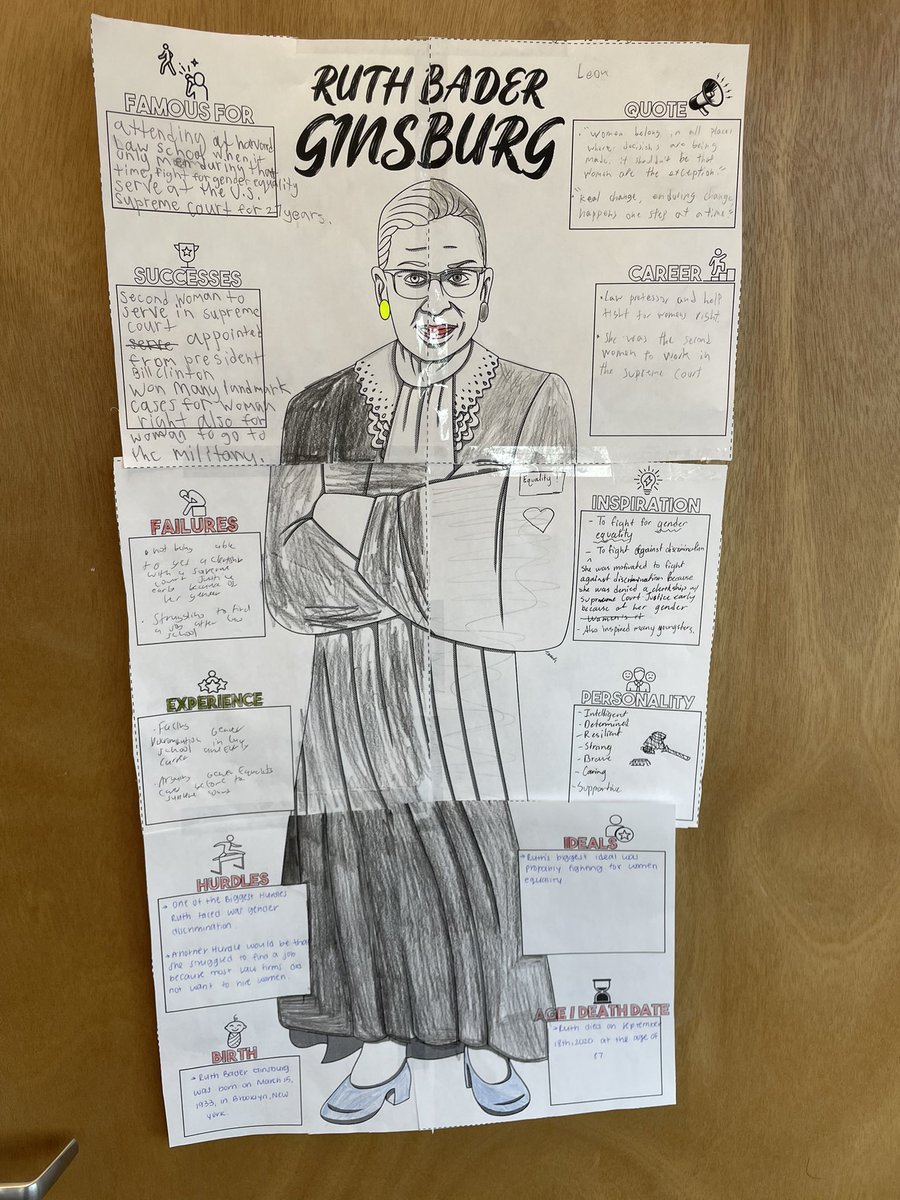 RUTH BADER
GINSBURG
Leon
FAMOUS FOR
attending at harvard
Law school when it
only men during that
time, fight for gender equality
serve at the U.S.
supreme court for 27 years.
QUOTE
• "Women belong in all places
where decisions are being
made. it shouldn't be that
women are the exception."
• "Real change, enduring change
happens one step at a time"
SUCCESSES
Second woman to
serve in supreme
court
serve appointed
from president
Bill clinton
won many landmark
cases for woman
right also for
woman to go to
the military.
CAREER
• Law professor and help
fight for womens right.
• She was the second
women to work in
the supreme court
Equality!
FAILURES
• not being able
to get a clerkship
with a supreme
court justice
early because of
her gender
• Struggling to find
a job after law
school
INSPIRATION
- To fight for gender
equality
- To fight against discrimination
She was motivated to fight
against discrimination because
she was denied a clerkship w/
Supreme Court Justice early
because of her gender
Women's
- Also inspired many youngsters.
EXPERIENCE
• Facing gender
discrimination in law
school and early
career
• Arguing gender equality
case before the
supreme court
PERSONALITY
- Intelligent
- Determined
- Resilient
- Strong
- Brave
- Caring
- Supportive
HURDLES
→ One of the Biggest Hurdles
Ruth faced was gender
discrimination.
→ Another Hurdle would be that
she struggled to find a job
because most law firms did
not want to hire women.
IDEALS
→ Ruth's biggest ideal was
fighting for women
equality
BIRTH
→ Ruth Bader Ginsburg
was born on March 15,
1933, in Brooklyn, New
York.
AGE / DEATH DATE
→ Ruth died on September
18th, 2020 at the age of
87